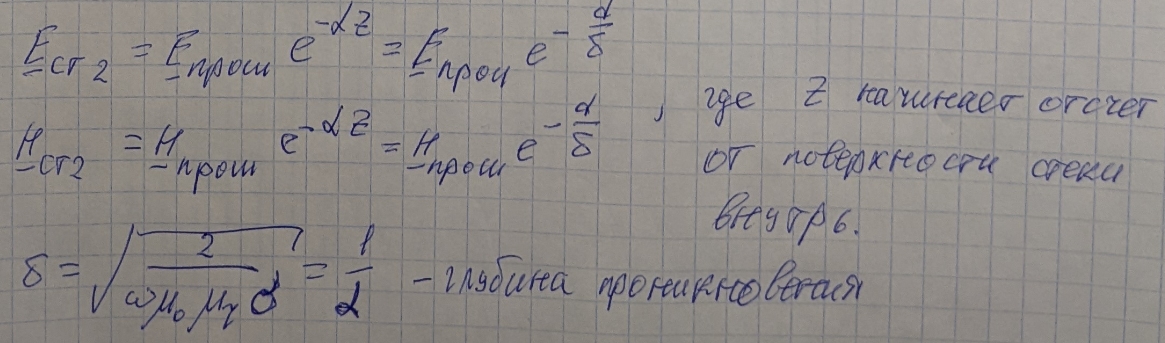 E̲ст2 = E̲прош e^(-αz) = E̲прош e^(-d/δ)
H̲ст2 = H̲прош e^(-αz) = H̲прош e^(-d/δ), где z начинает отсчет
от поверхности стеки
внутрь.
δ = √(2/(ωμ₀μᵣσ)) = 1/α - глубина проникновения